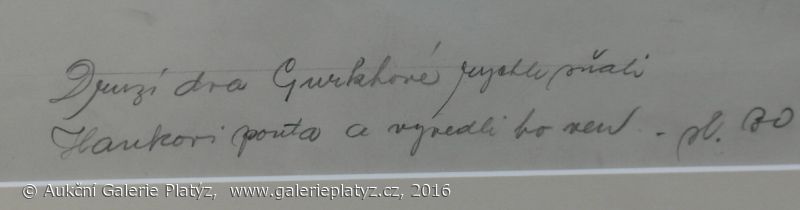 Druzí dva Gurkhové rychle sňali
Hankovi pouta a vyvedli ho ven. - str. 30
© Aukční Galerie Platýz, www.galerieplatyz.cz, 2016